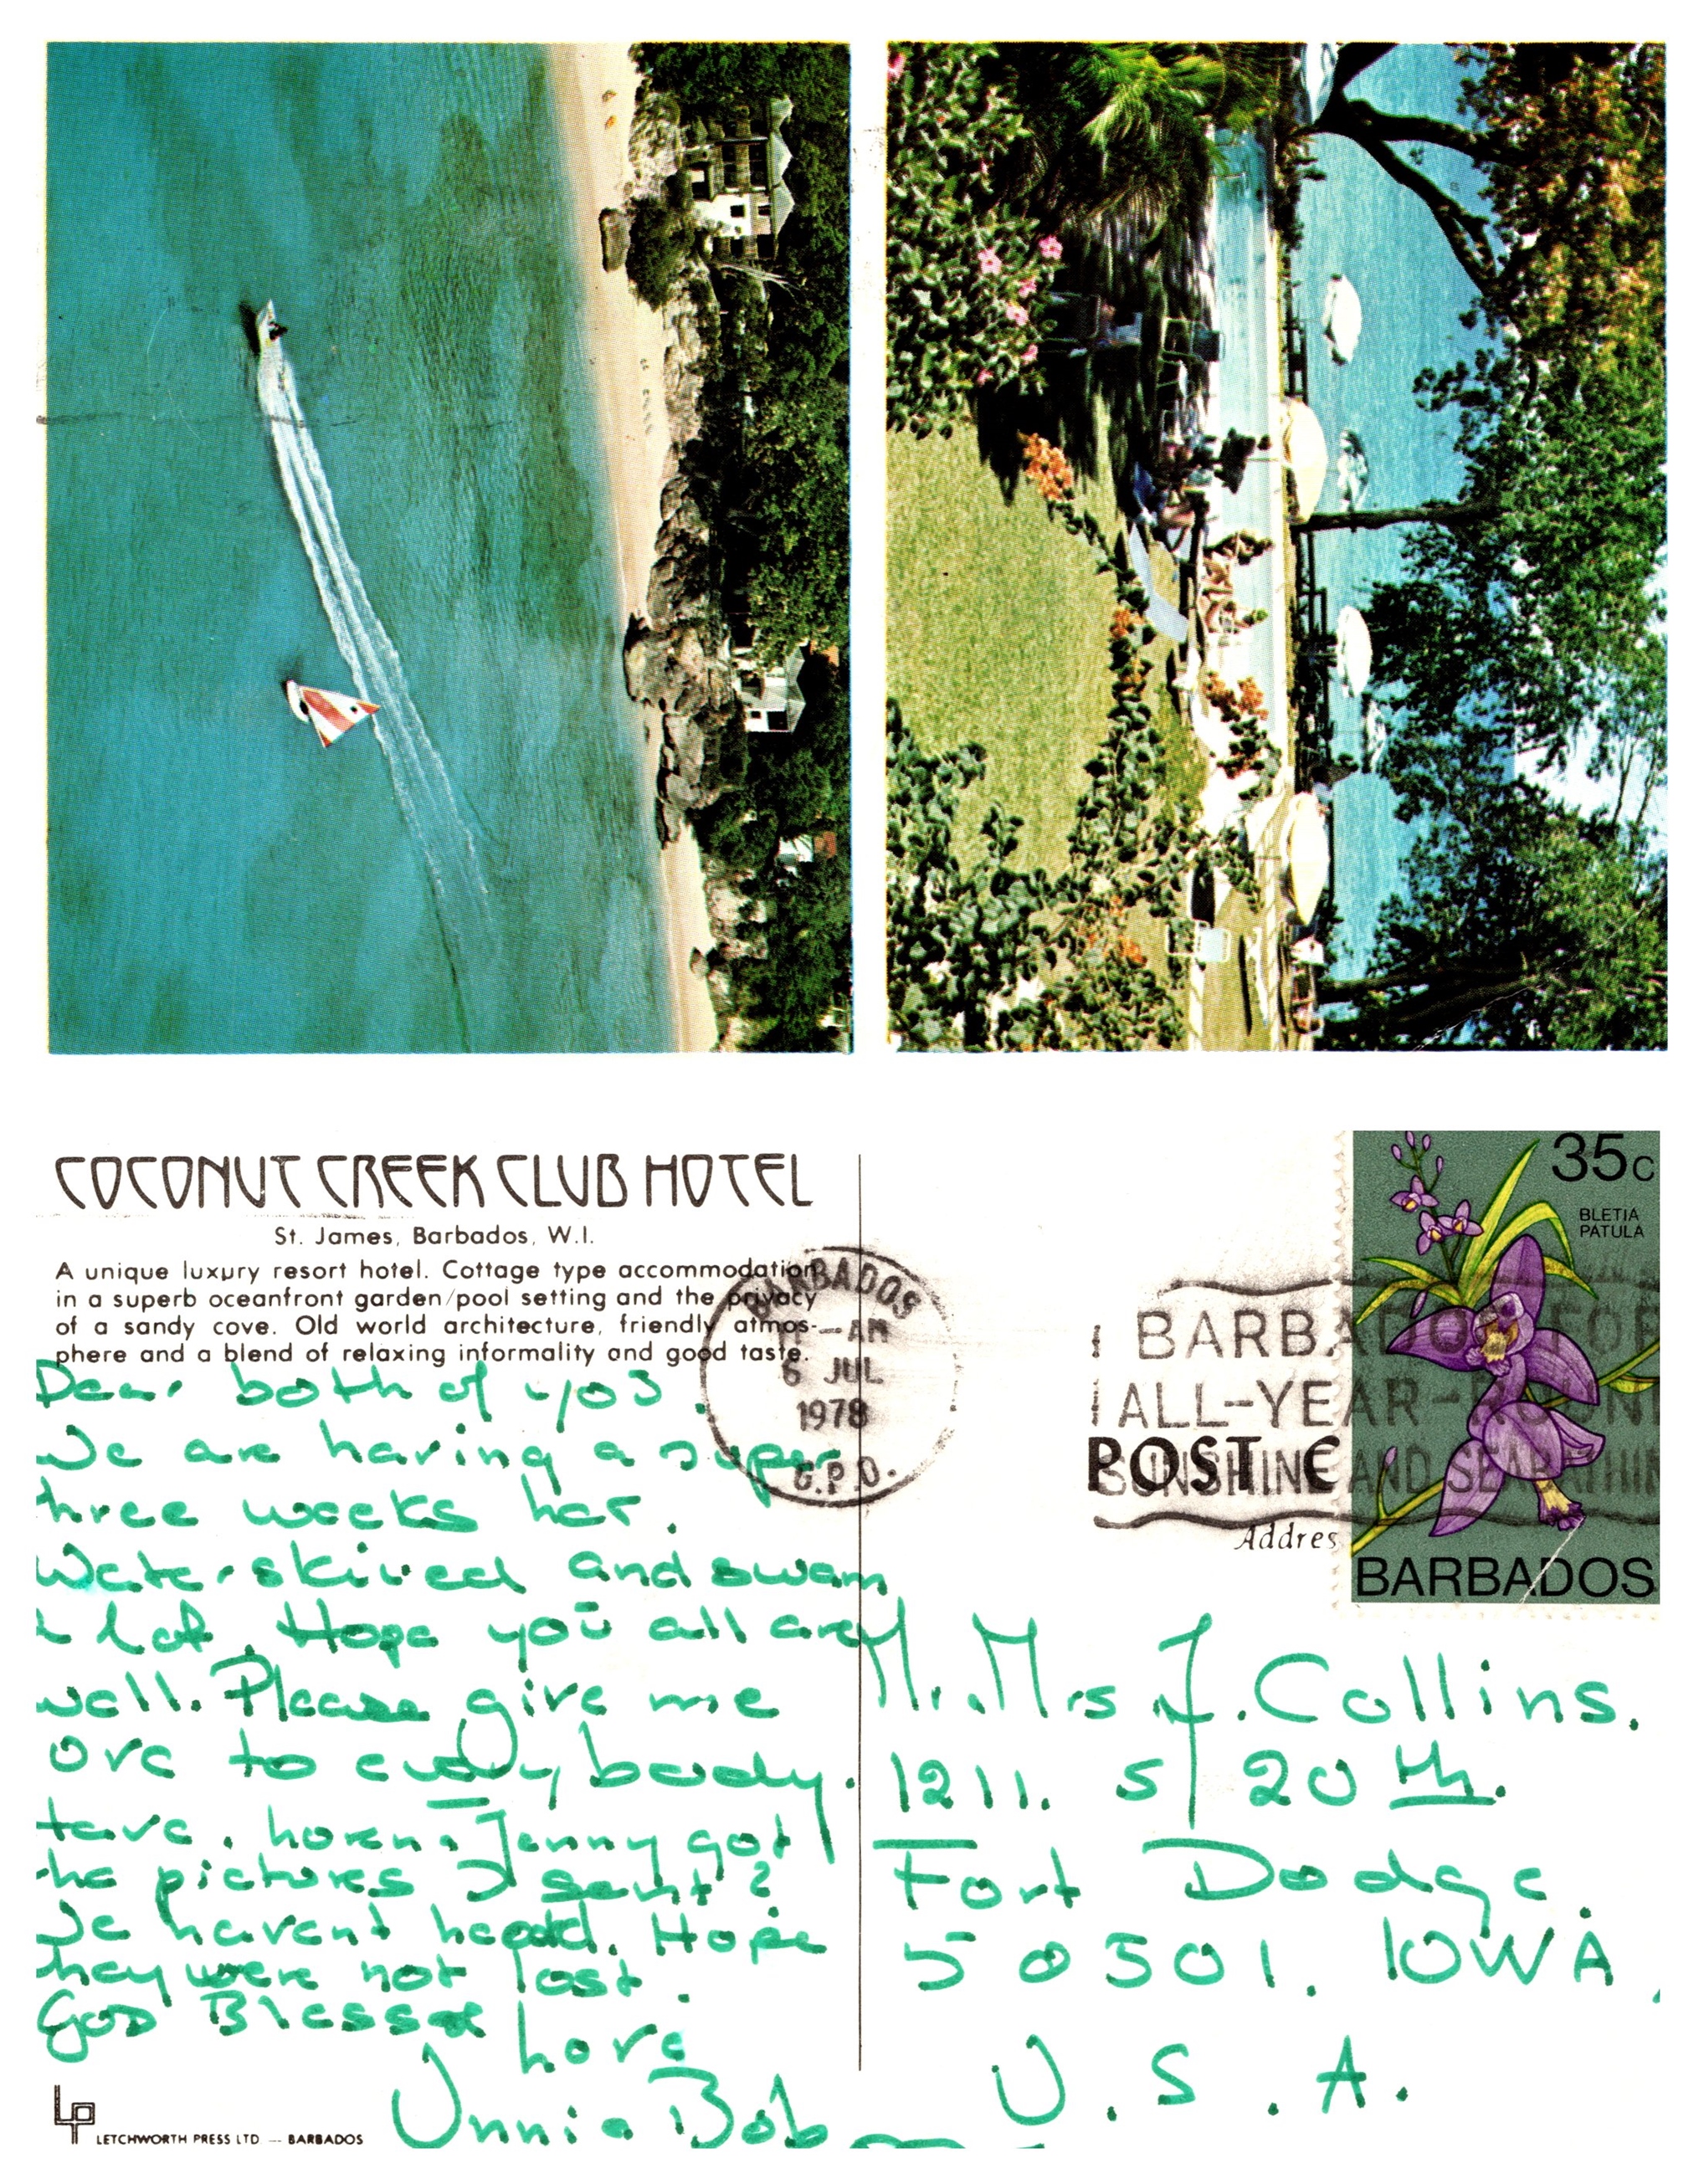 COCONUT CREEK CLUB HOTEL
St. James, Barbados, W.I.
A unique luxury resort hotel. Cottage type accommodation
in a superb oceanfront garden/pool setting and the privacy
of a sandy cove. Old world architecture, friendly atmos-
phere and a blend of relaxing informality and good taste.
Dear both of you.
We are having a super
hree weeks her.
Water skieed and swam
a lot. Hope you all are
well. Please give me
ove to everybody.
Jenny got
he pictures I sent?
We havent heard. Hope
hey were not lost.
God Bless
Love
Unnie Bob
LETCHWORTH PRESS LTD — BARBADOS
BARBADOS
AM
6 JUL
1978
G.P.O.
BARBADOS FOR
ALL-YEAR-ROUN
SUNSHINE AND SEABATHIN
POST C
Addres
35c
BLETIA
PATULA
BARBADOS
Mr. Mrs J. Collins.
1211. S 20th.
Fort Dodge.
50501. IOWA,
U.S.A.